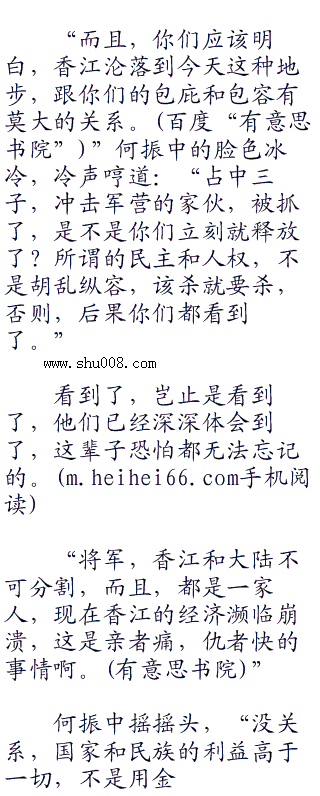 “而且，你们应该明
白，香江沦落到今天这种地
步，跟你们的包庇和包容有
莫大的关系。(百度“有意思
书院”)”何振中的脸色冰
冷，冷声哼道：“占中三
子，冲击军营的家伙，被抓
了，是不是你们立刻就释放
了？所谓的民主和人权，不
是胡乱纵容，该杀就要杀，
否则，后果你们都看到
了。”
www.shu008.com
看到了，岂止是看到
了，他们已经深深体会到
了，这辈子恐怕都无法忘记
的。(m.heihei66.com手机阅
读)
“将军，香江和大陆不
可分割，而且，都是一家
人，现在香江的经济濒临崩
溃，这是亲者痛，仇者快的
事情啊。(有意思书院)”
何振中摇摇头，“没关
系，国家和民族的利益高于
一切，不是用金